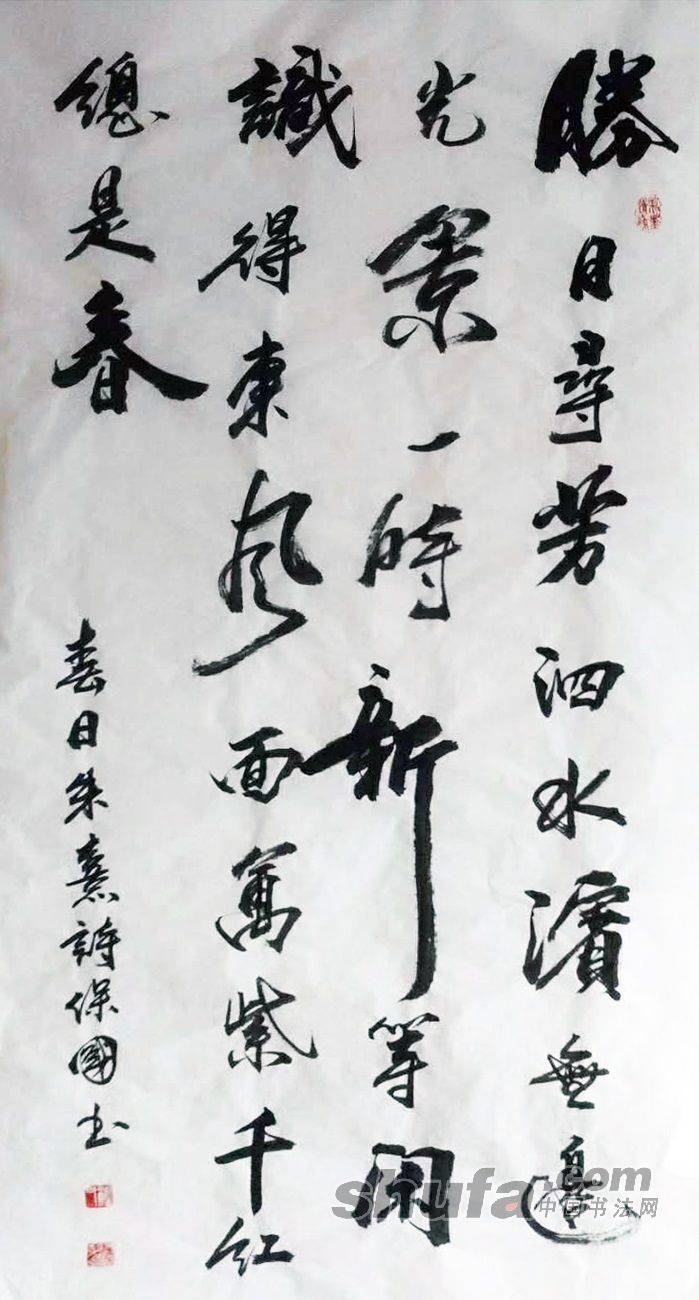 勝日尋芳泗水濱無邊
光景一時新等閑
識得東風面萬紫千紅
總是春
春日朱熹詩保國书
shufa.com
中国书法网